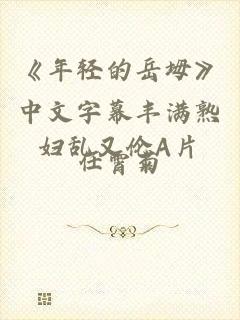 《年轻的岳坶》
中文字幕丰满熟
妇乱又伦A片
任霄菊